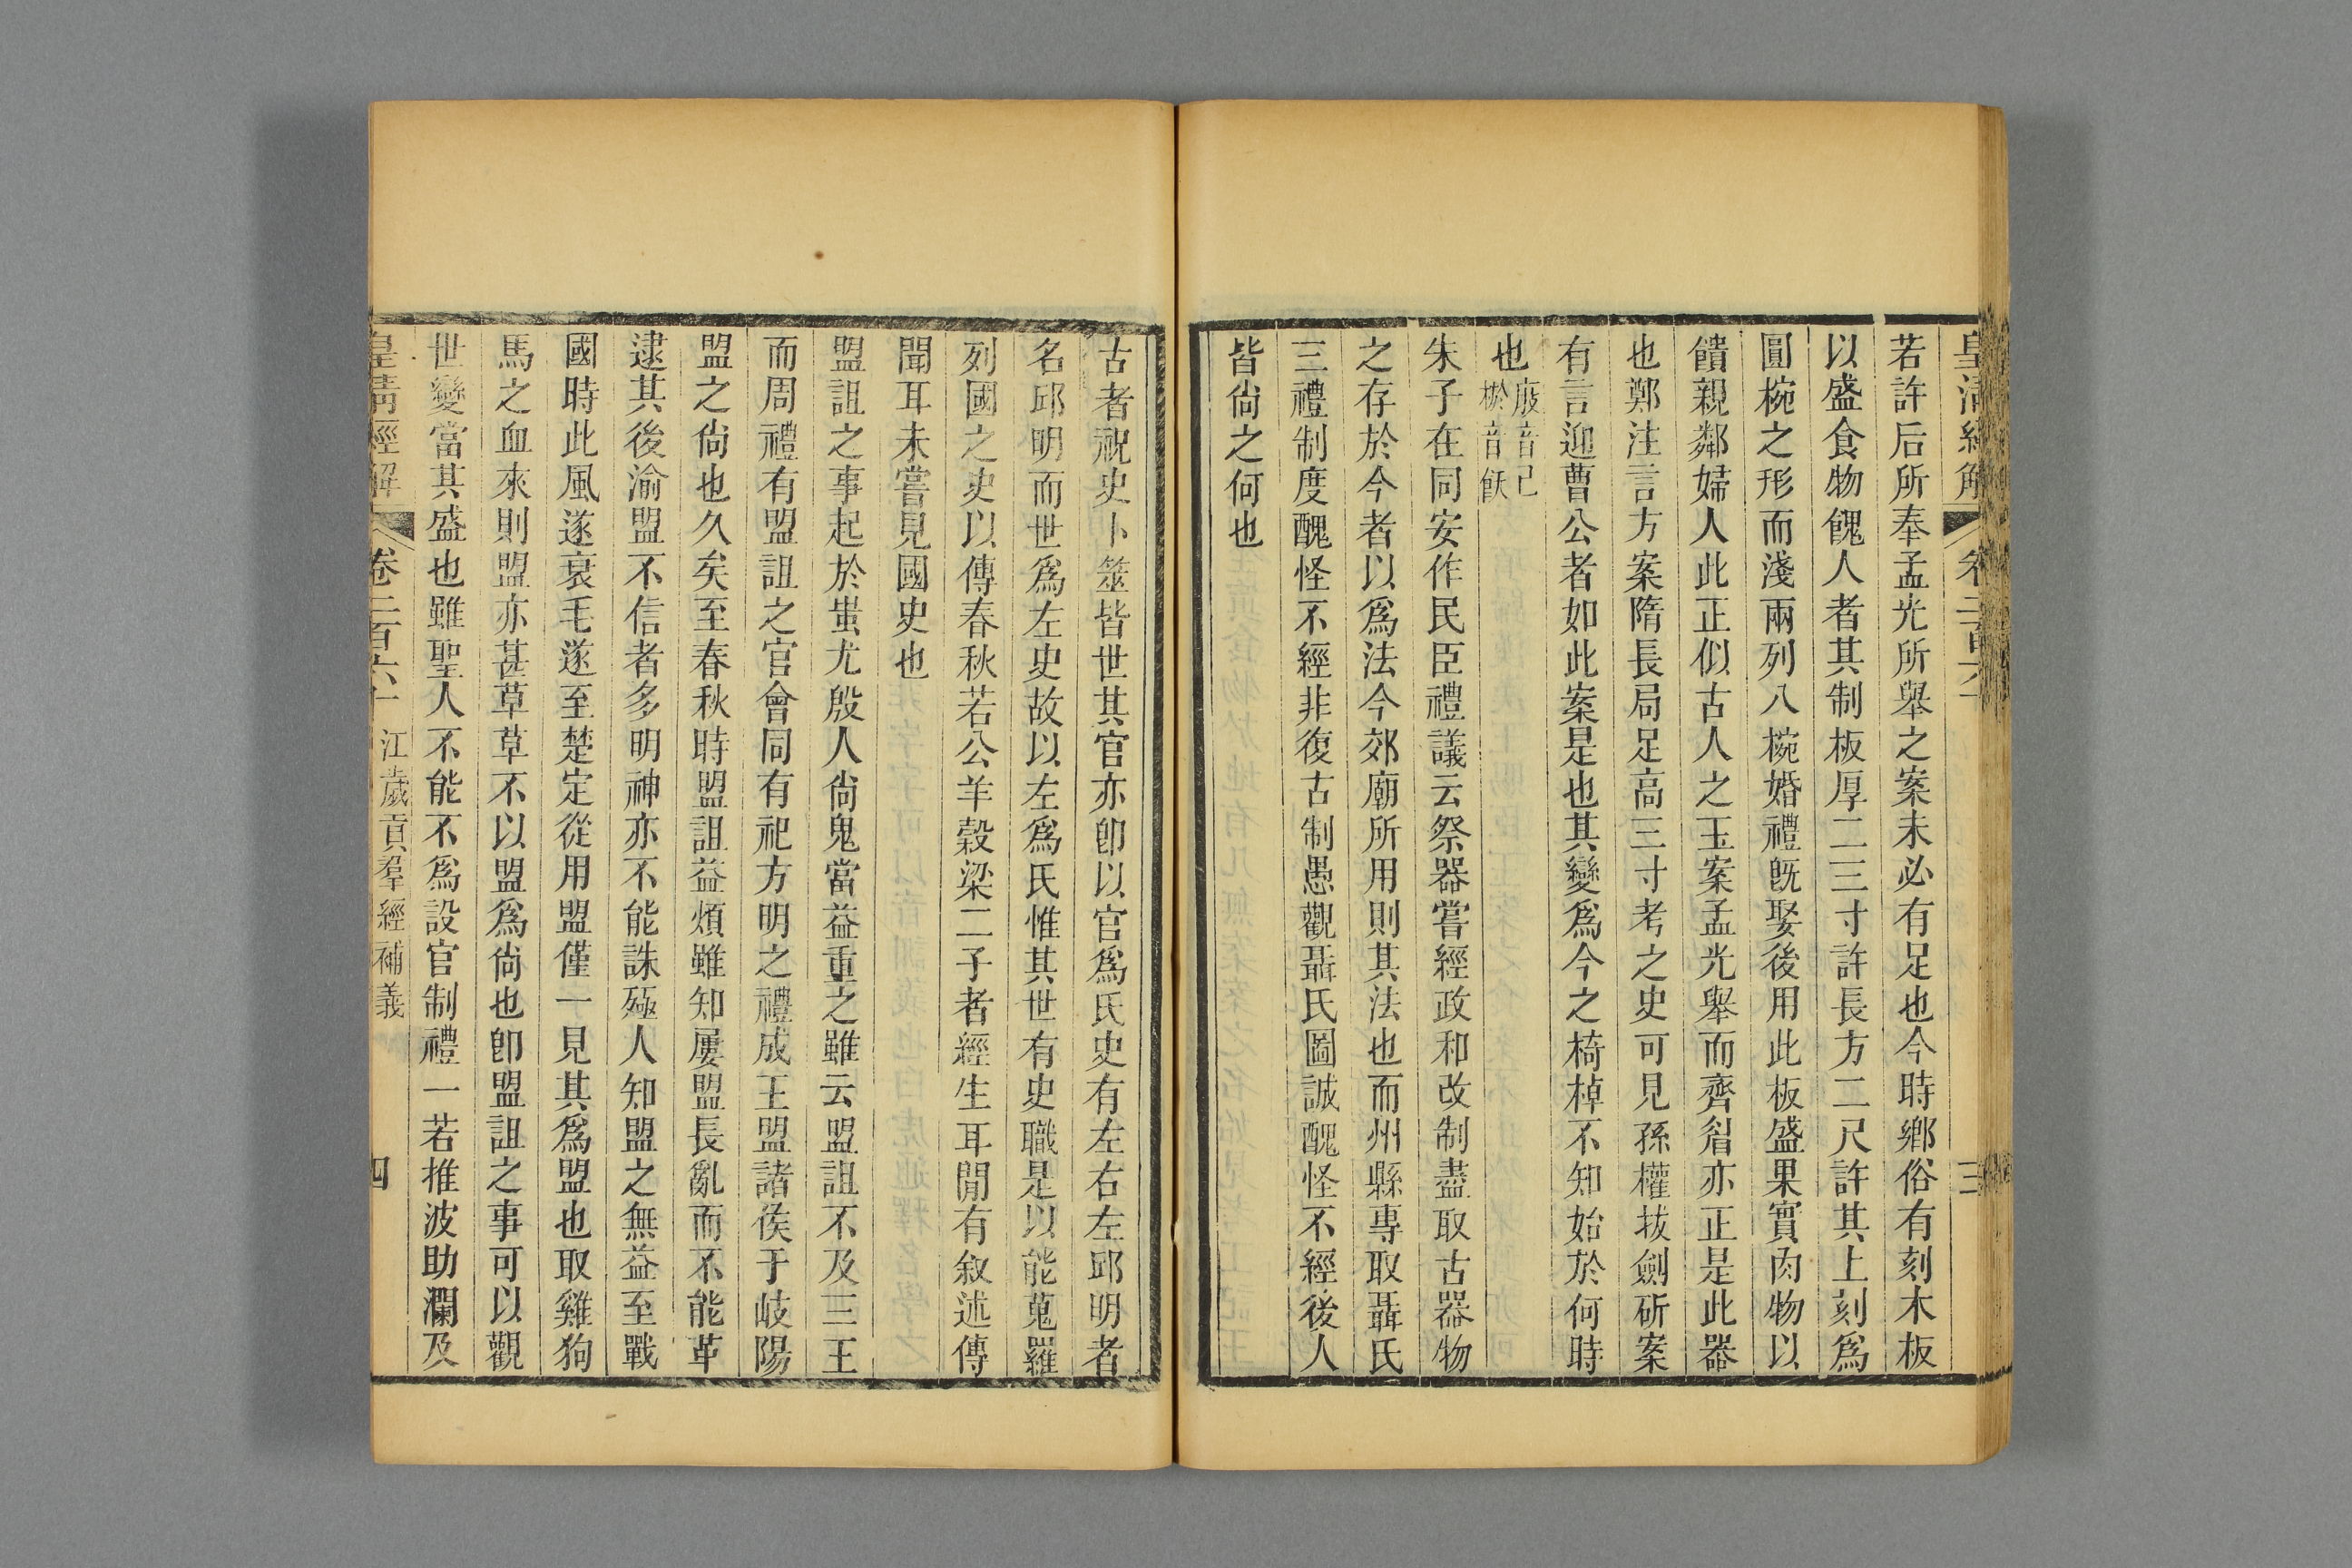 皇淸經解
卷二百六十
三
若許后所奉孟光所舉之案未必有足也今時鄕俗有刻木板
以盛食物餽人者其制板厚二三寸許長方二尺許其上刻爲
圓椀之形而淺兩列八椀婚禮旣娶後用此板盛果實肉物以
饋親鄰婦人此正似古人之玉案孟光舉而齊眉亦正是此器
也鄭注言方案隋長局足高三寸考之史可見孫權拔劍斫案
有言迎曹公者如此案是也其變爲今之椅棹不知始於何時
也庪音己棜音飫
朱子在同安作民臣禮議云祭器嘗經政和改制盡取古器物
之存於今者以爲法今郊廟所用則其法也而州縣專取聶氏
三禮制度醜怪不經非復古制愚觀聶氏圖誠醜怪不經後人
皆尙之何也
古者祝史卜筮皆世其官亦卽以官爲氏史有左右左邱明者
名邱明而世爲左史故以左爲氏惟其世有史職是以能蒐羅
列國之史以傳春秋若公羊穀梁二子者經生耳閒有敘述傳
聞耳未嘗見國史也
盟詛之事起於蚩尤殷人尙鬼當益重之雖云盟詛不及三王
而周禮有盟詛之官會同有祀方明之禮成王盟諸侯于岐陽
盟之尙也久矣至春秋時盟詛益煩雖知屢盟長亂而不能革
逮其後渝盟不信者多明神亦不能誅殛人知盟之無益至戰
國時此風遂衰毛遂至楚定從用盟僅一見其爲盟也取雞狗
馬之血來則盟亦甚草草不以盟爲尙也卽盟詛之事可以觀
世變當其盛也雖聖人不能不爲設官制禮一若推波助瀾及
皇淸經解
卷二百六十
江歲貢羣經補義
四